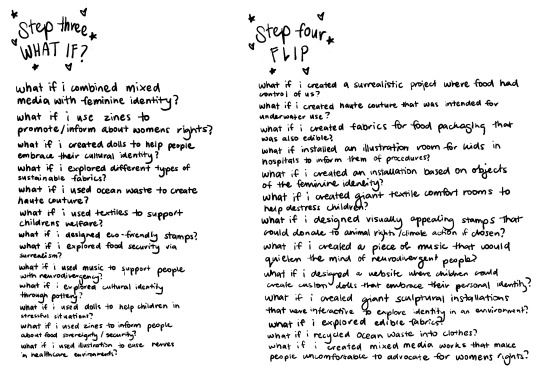 Step three
WHAT IF?
what if i combined mixed
media with feminine identity?
what if i use zines to
promote/inform about womens rights?
what if i created dolls to help people
embrace their cultural identity?
what if i explored different types of
sustainable fabrics?
what if i used ocean waste to create
haute couture?
what if i used textiles to support
childrens welfare?
what if i designed eco-friendly stamps?
what if i explored food security via
surrealism?
what if i used music to support people
with neurodivergency?
what if i explored cultural identity
through pottery?
what if i used dolls to help children in
stressful situations?
what if i used zines to inform people
about food sovereignty / security?
what if i used illustration to ease nerves
in healthcare environments?
Step four
FLIP
what if i created a surrealistic project where food had
control of us?
what if i created haute couture that was intended for
underwater use?
what if i created fabrics for food packaging that
was also edible?
what if installed an illustration room for kids in
hospitals to inform them of procedures?
what if i created an installation based on objects
of the feminine identity?
what if i created giant textile comfort rooms to
help destress children?
what if i designed visually appealing stamps that
could donate to animal rights/climate action if chosen?
what if i created a piece of music that would
quieten the mind of neurodivergent people?
what if i designed a website where children could
create custom dolls that embrace their personal identity?
what if i created giant sculptural installations
that were interactive to explore identity in an environment?
what if i explored edible fabrics?
what if i recycled ocean waste into clothes?
what if i created mixed media works that make
people uncomfortable to advocate for womens rights?